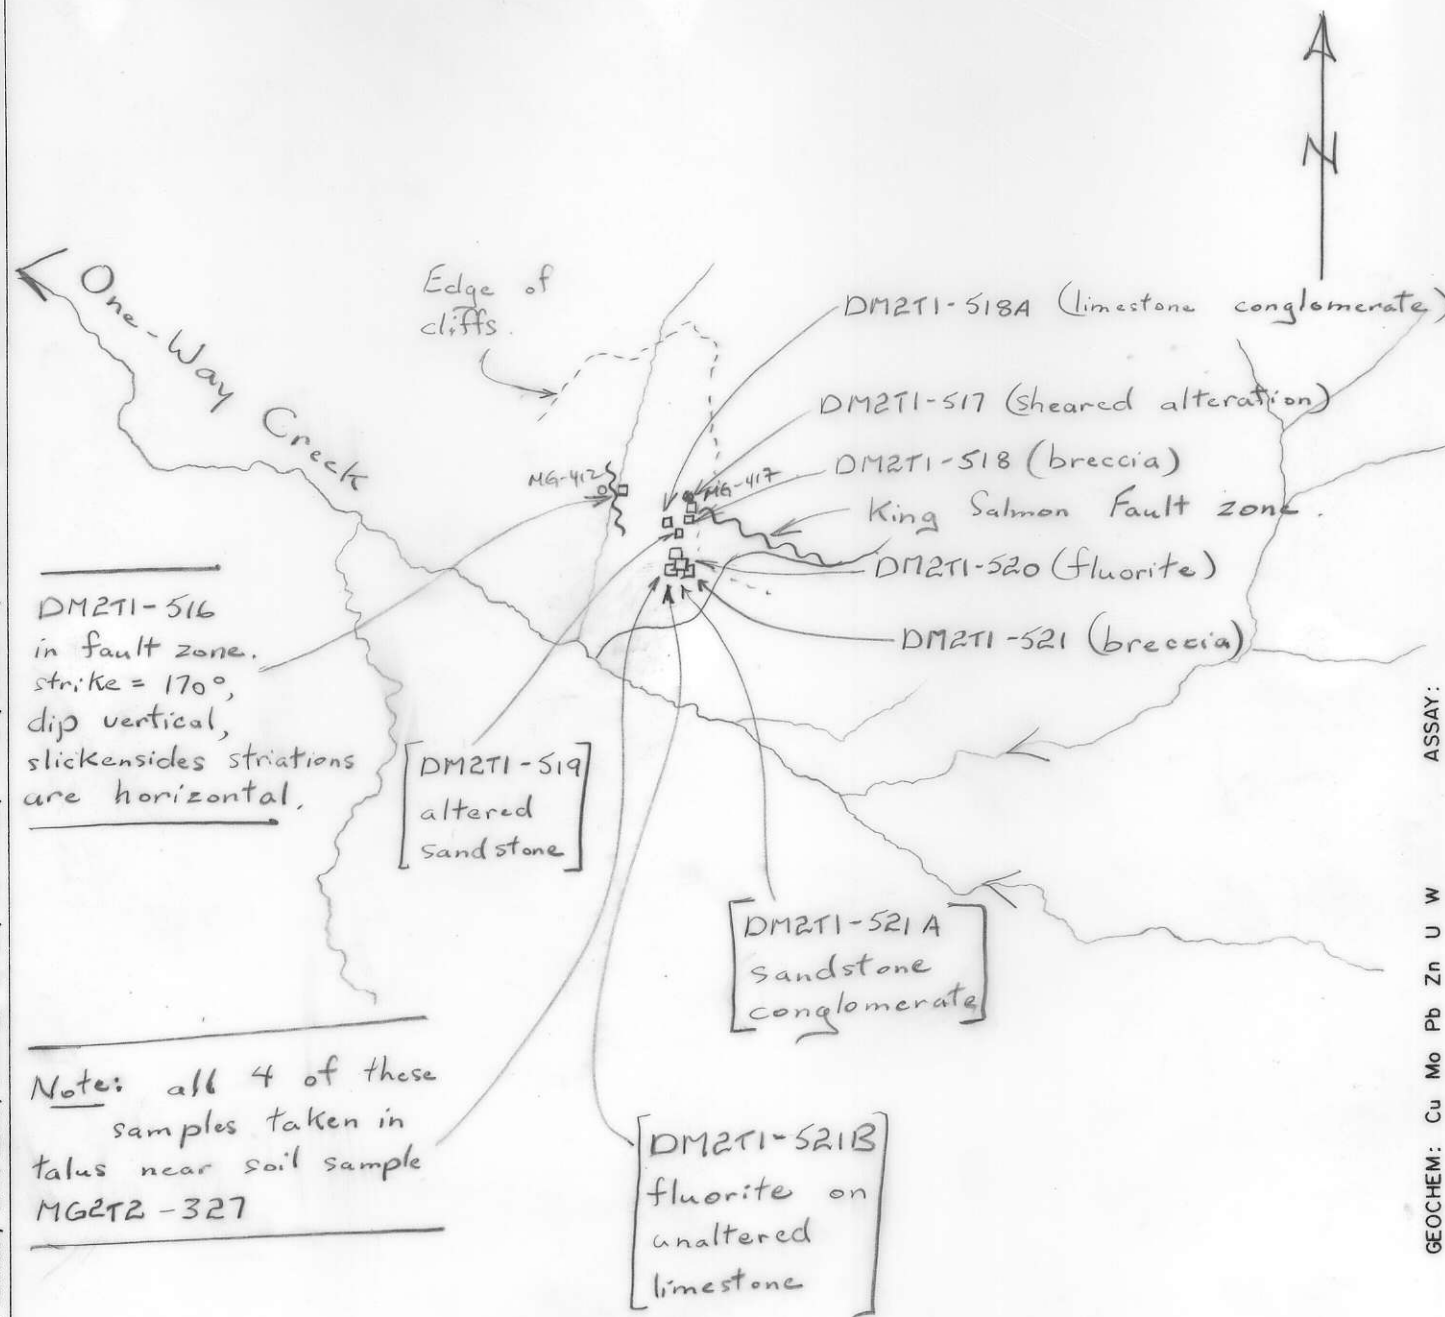 N
One-Way Creek
Edge of
cliffs.
DM2T1-518A (limestone conglomerate)
DM2T1-517 (sheared alteration)
MG-412
MG-417
DM2T1-518 (breccia)
King Salmon Fault zone.
DM2T1-520 (fluorite)
DM2T1-521 (breccia)
DM2T1-516
in fault zone.
strike = 170°,
dip vertical,
slickensides striations
are horizontal.
DM2T1-519
altered
sandstone
DM2T1-521A
sandstone
conglomerate
Note: all 4 of these
samples taken in
talus near soil sample
MG2T2-327
DM2T1-521B
fluorite on
unaltered
limestone
GEOCHEM: Cu Mo Pb Zn U W ASSAY: